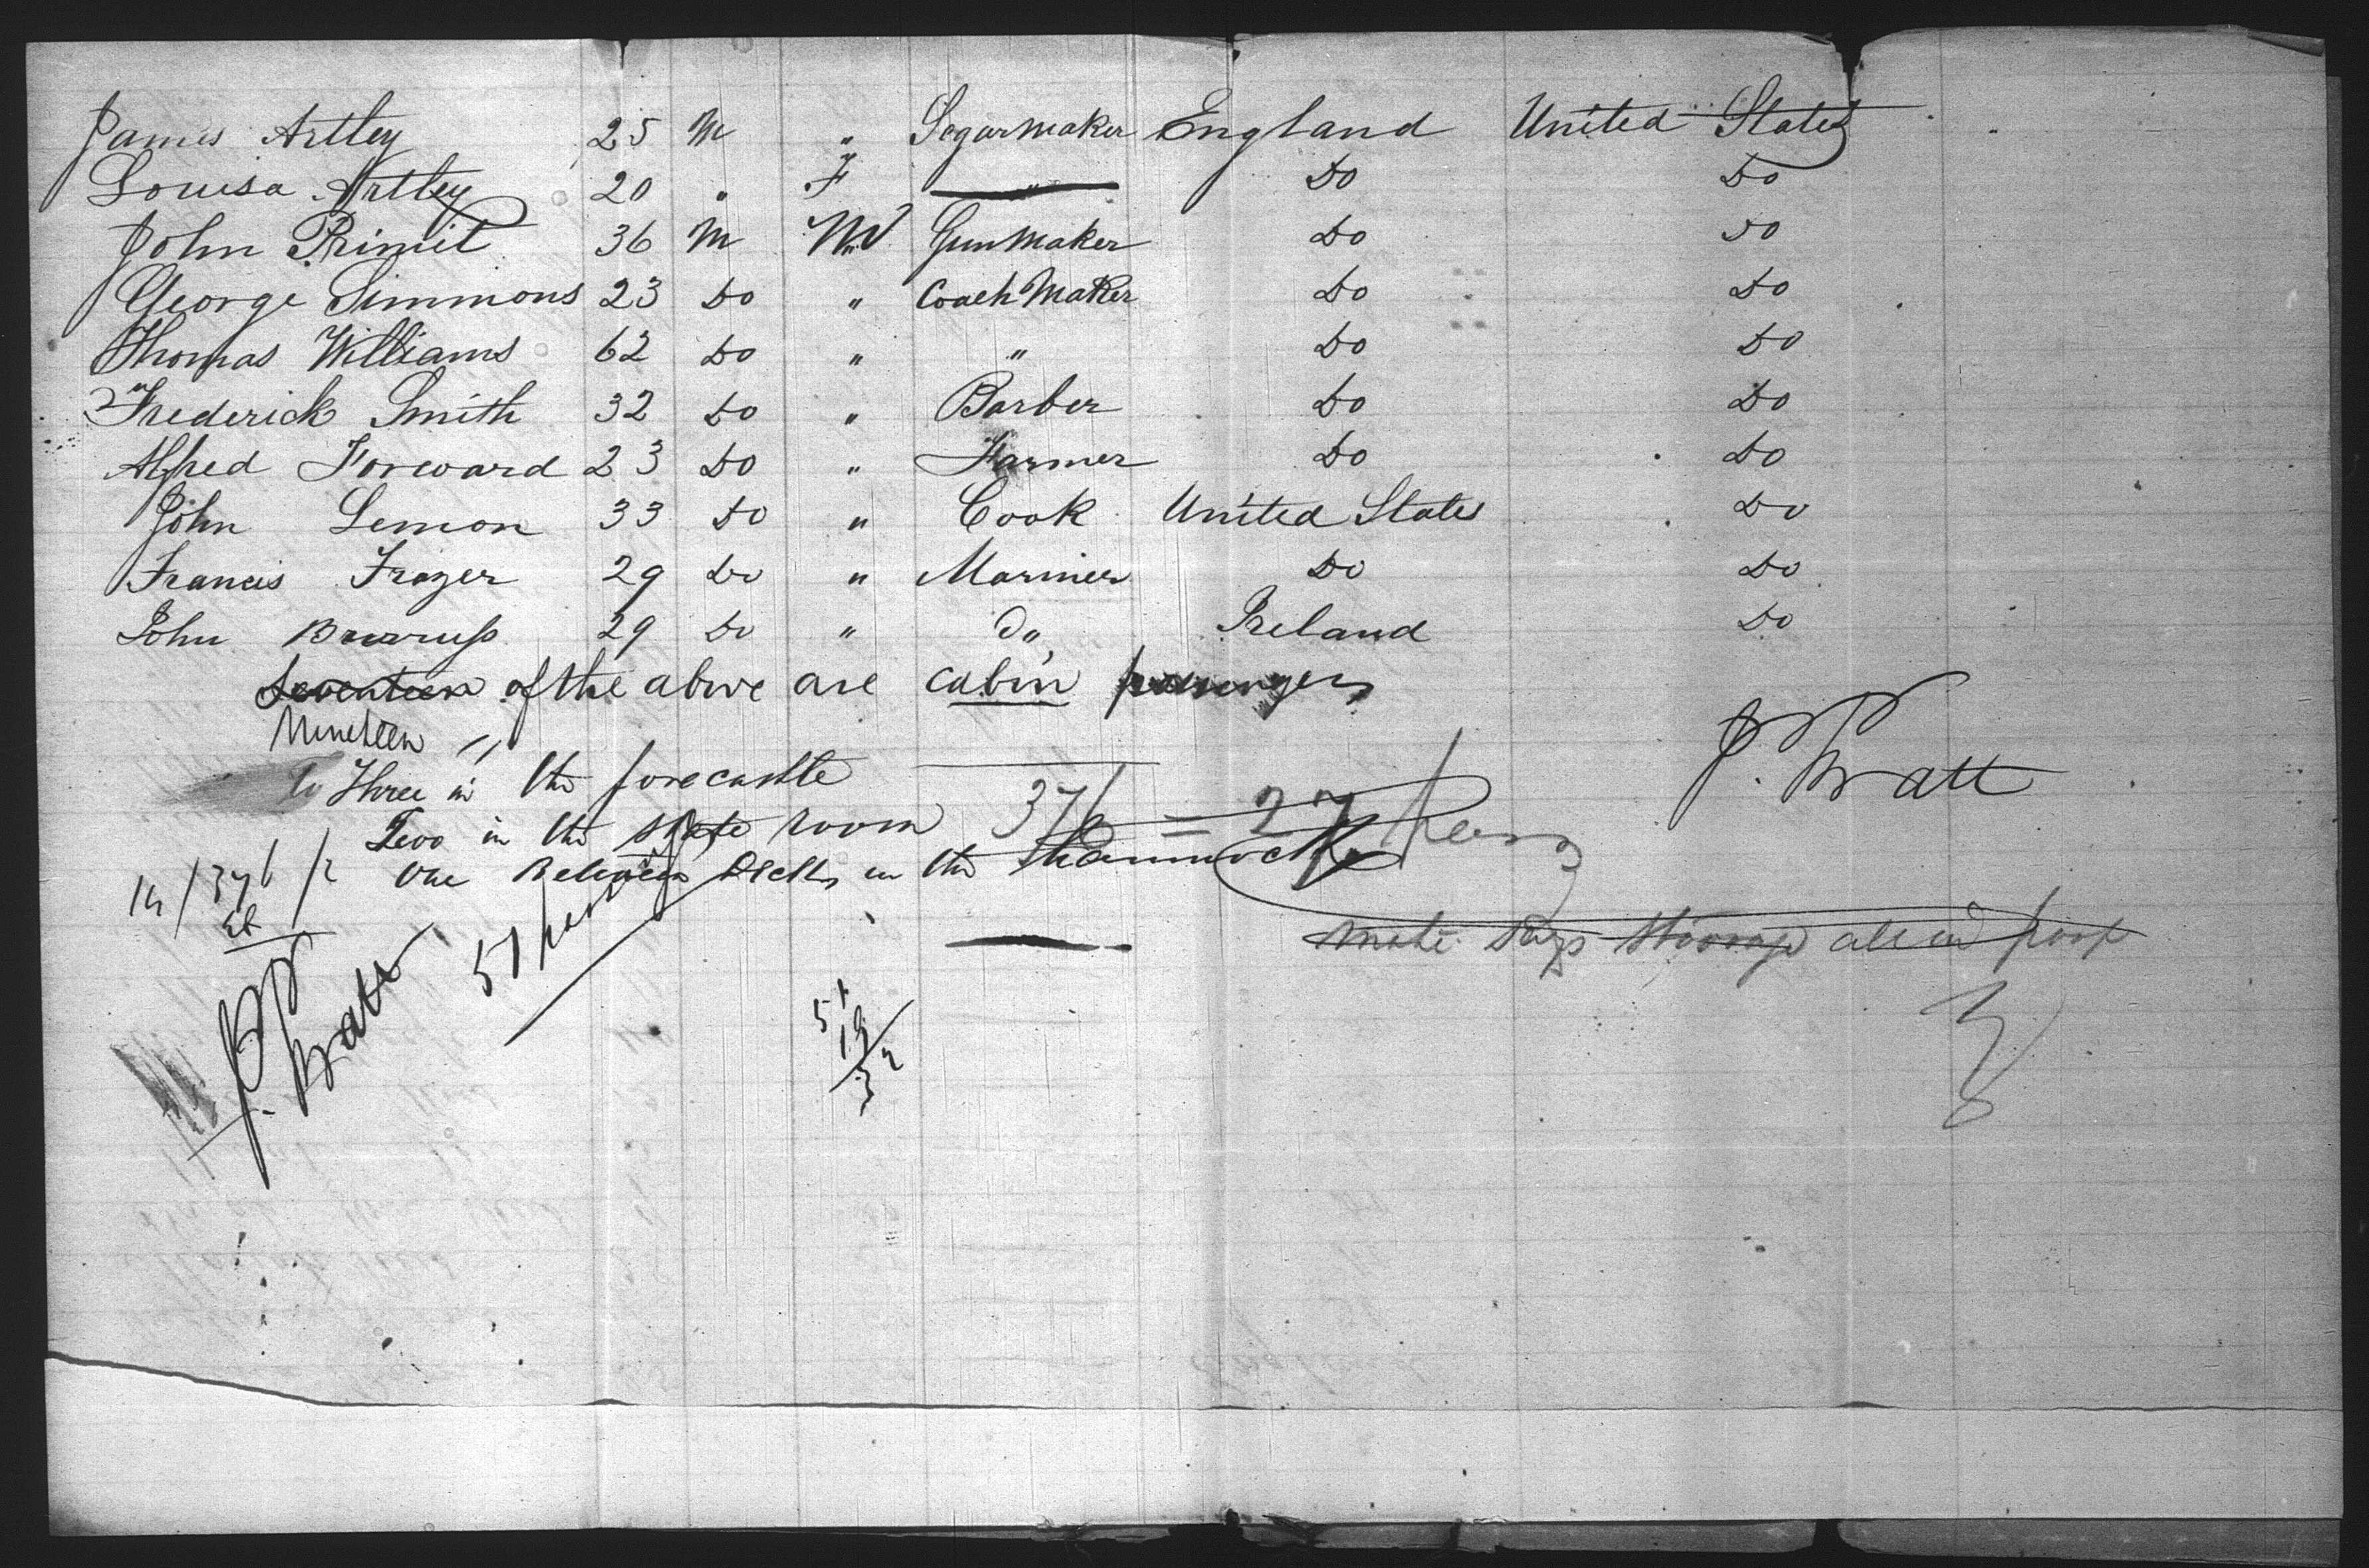 James Artley 25 M " Segarmaker England United States
Louisa Artley 20 " F " Do Do
John Primit 36 M M Gunmaker Do Do
George Simmons 23 Do " Coach Maker Do Do
Thomas Williams 62 Do " " Do Do
Frederick Smith 32 Do " Barber Do Do
Alfred Forward 23 Do " Farmer Do Do
John Lemon 33 Do " Cook United States Do
Francis Frazer 29 Do " Mariner Do Do
John 29 Do " Do Ireland Do
Seventeen of the above are cabin passengers
Nineteen "
J. Pratt
Three in the forecastle
Two in the State room
37 = 27
One Between Decks in the Hammock
14/376/2
mate says all in poop
J. Pratt
51
51
19
32